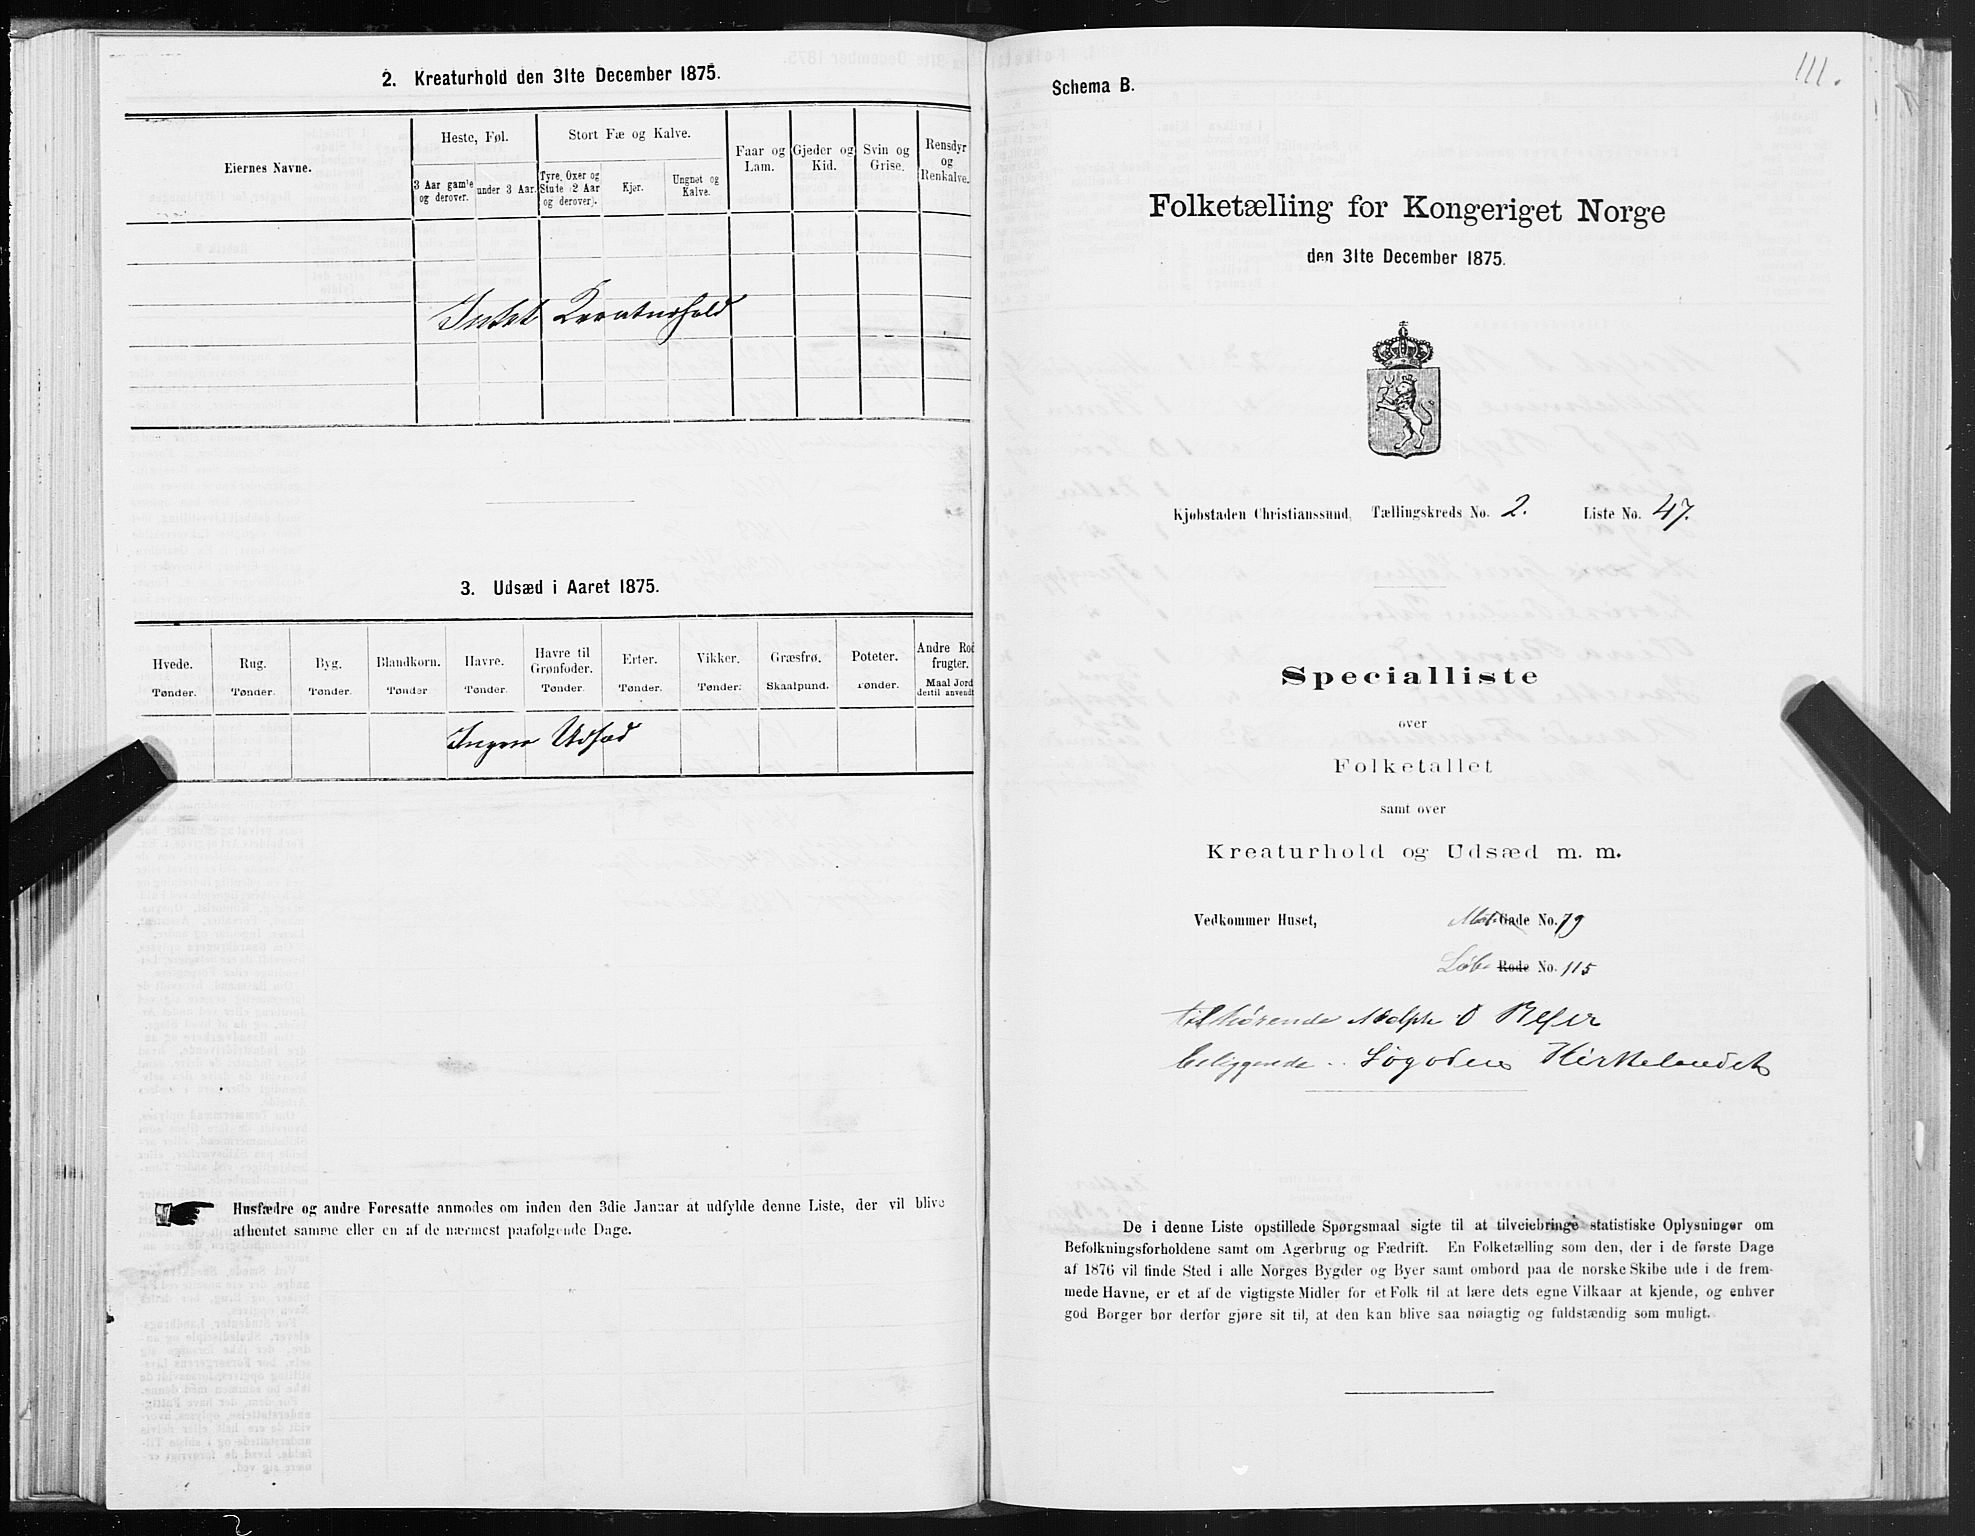 2. Kreaturhold den 31te December 1875.
Eiernes Navne.
Heste, Føl.
Stort Fæ og Kalve.
3 Aar gamle og derover.
under 3 Aar.
Tyre, Oxer og Stude (2 Aar og derover).
Kjør.
Ungnøt og Kalve.
Faar og Lam.
Gjeder og Kid.
Svin og Grise.
Rensdyr og Renkalve.
Intet Kreaturhold
3. Udsæd i Aaret 1875.
Hvede. Tønder.
Rug. Tønder.
Byg. Tønder.
Blandkorn. Tønder
Havre. Tønder.
Havre til Grønfoder. Tønder.
Erter. Tønder.
Vikker. Tønder.
Græsfrø. Skaalpund.
Poteter. Tønder.
Andre Rodfrugter. Maal Jord dertil anvendt
Ingen Udsæd
Husfædre og andre Foresatte anmodes om inden den 3die Januar at udfylde denne Liste, der vil blive
afhentet samme eller en af de nærmest paafølgende Dage.
111.
Schema B.
Folketælling for Kongeriget Norge
den 31te December 1875.
Kjøbstaden Christianssund, Tællingskreds No. 2. Liste No. 47.
Specialliste
over
Folketallet
samt over
Kreaturhold og Udsæd m. m.
Vedkommer Huset, Mat. Gade No. 79
Löbe Rode No. 115
tilhørende Adolph O
beliggende Kirkelandet
De i denne Liste opstillede Spørgsmaal sigte til at tilveiebringe statistiske Oplysninger om
Befolkningsforholdene samt om Agerbrug og Fædrift. En Folketælling som den, der i de første Dage
af 1876 vil finde Sted i alle Norges Bygder og Byer samt ombord paa de norske Skibe ude i de frem-
mede Havne, er et af de vigtigste Midler for et Folk til at lære dets egne Vilkaar at kjende, og enhver
god Borger bør derfor gjøre sit til, at den kan blive saa nøiagtig og fuldstændig som muligt.